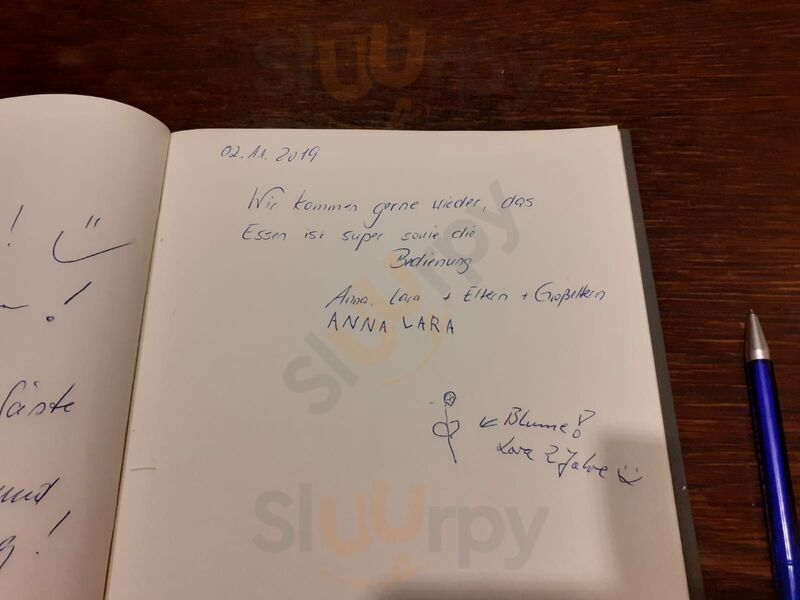 !
!
Gäste
und
!
02.11.2019
Wir kommen gerne wieder, das
Essen ist super sowie die
Bedienung
Anna, Lara + Eltern + Großeltern
ANNA LARA
← Blume!
Lara 2 Jahre
Sluurpy
Sluurpy
Sluurpy